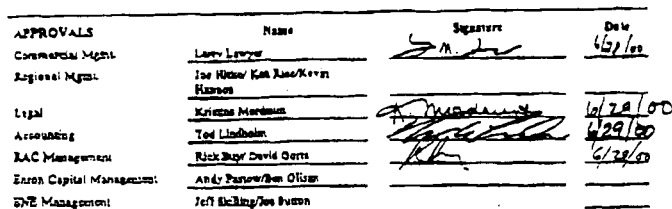 APPROVALS Name Signature Date
Commercial Mgmt. Larry Lawyer 6/28/00
Regional Mgmt. Joe Hirko/ Ken Rice/Kevin
Hannon
Legal Kristina Mordaunt K. Mordaunt 6/28/00
Accounting Tod Lindholm 6/29/00
RAC Management Rick Buy/ David Gorte 6/28/00
Enron Capital Management Andy Fastow/Ben Glisan
ENE Management Jeff Skilling/Joe Sutton